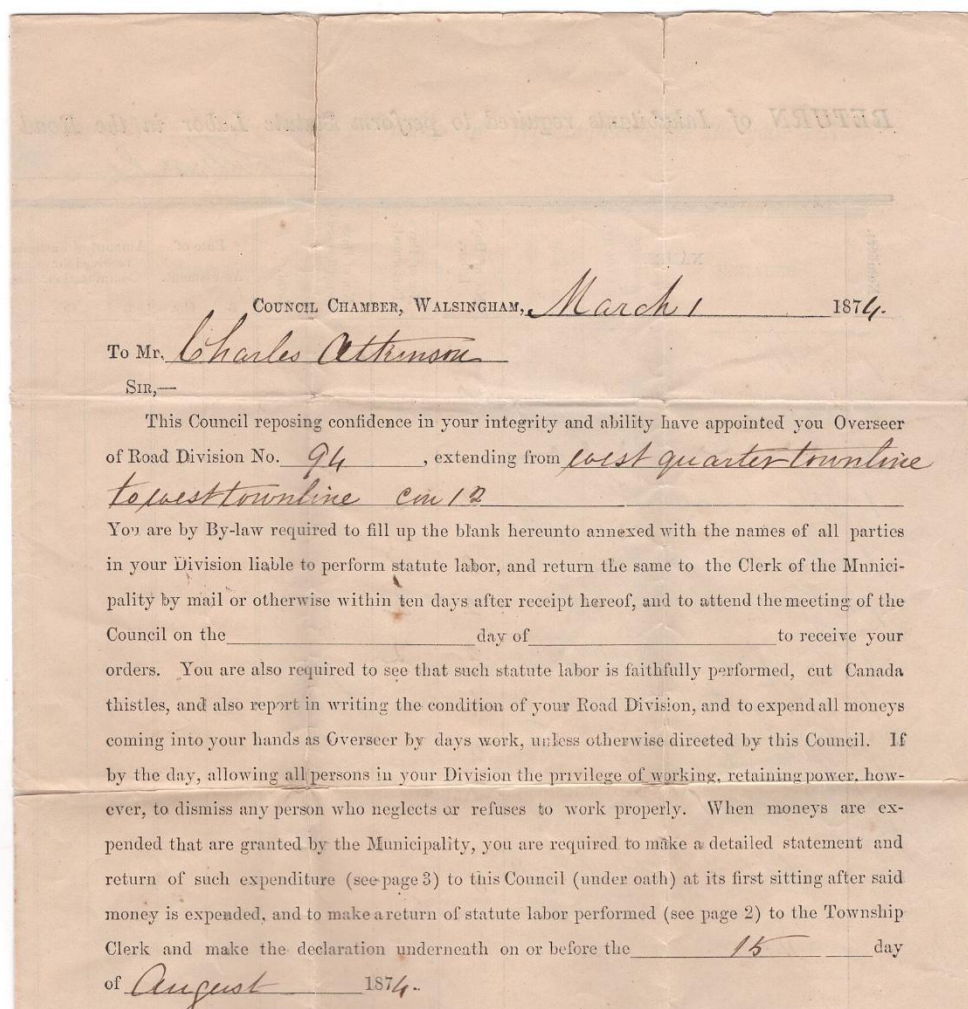 COUNCIL CHAMBER, WALSINGHAM, March 1 1874.
To Mr. Charles Atkinson
SIR,—
This Council reposing confidence in your integrity and ability have appointed you Overseer
of Road Division No. 94, extending from west quarter townline
to west townline con 12
You are by By-law required to fill up the blank hereunto annexed with the names of all parties
in your Division liable to perform statute labor, and return the same to the Clerk of the Munici-
pality by mail or otherwise within ten days after receipt hereof, and to attend the meeting of the
Council on the day of to receive your
orders. You are also required to see that such statute labor is faithfully performed, cut Canada
thistles, and also report in writing the condition of your Road Division, and to expend all moneys
coming into your hands as Overseer by days work, unless otherwise directed by this Council. If
by the day, allowing all persons in your Division the privilege of working, retaining power, how-
ever, to dismiss any person who neglects or refuses to work properly. When moneys are ex-
pended that are granted by the Municipality, you are required to make a detailed statement and
return of such expenditure (see page 3) to this Council (under oath) at its first sitting after said
money is expended, and to make a return of statute labor performed (see page 2) to the Township
Clerk and make the declaration underneath on or before the 15 day
of August 1874.